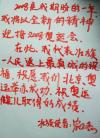 2008是我期盼的一年
我将以全新的精神
迎接2008奥运会。
在此，我代表水族
人民送上最真诚的祝
福，祝愿我们北京奥
运举办成功，祝奥运
健儿取得好成绩。
水族使者：